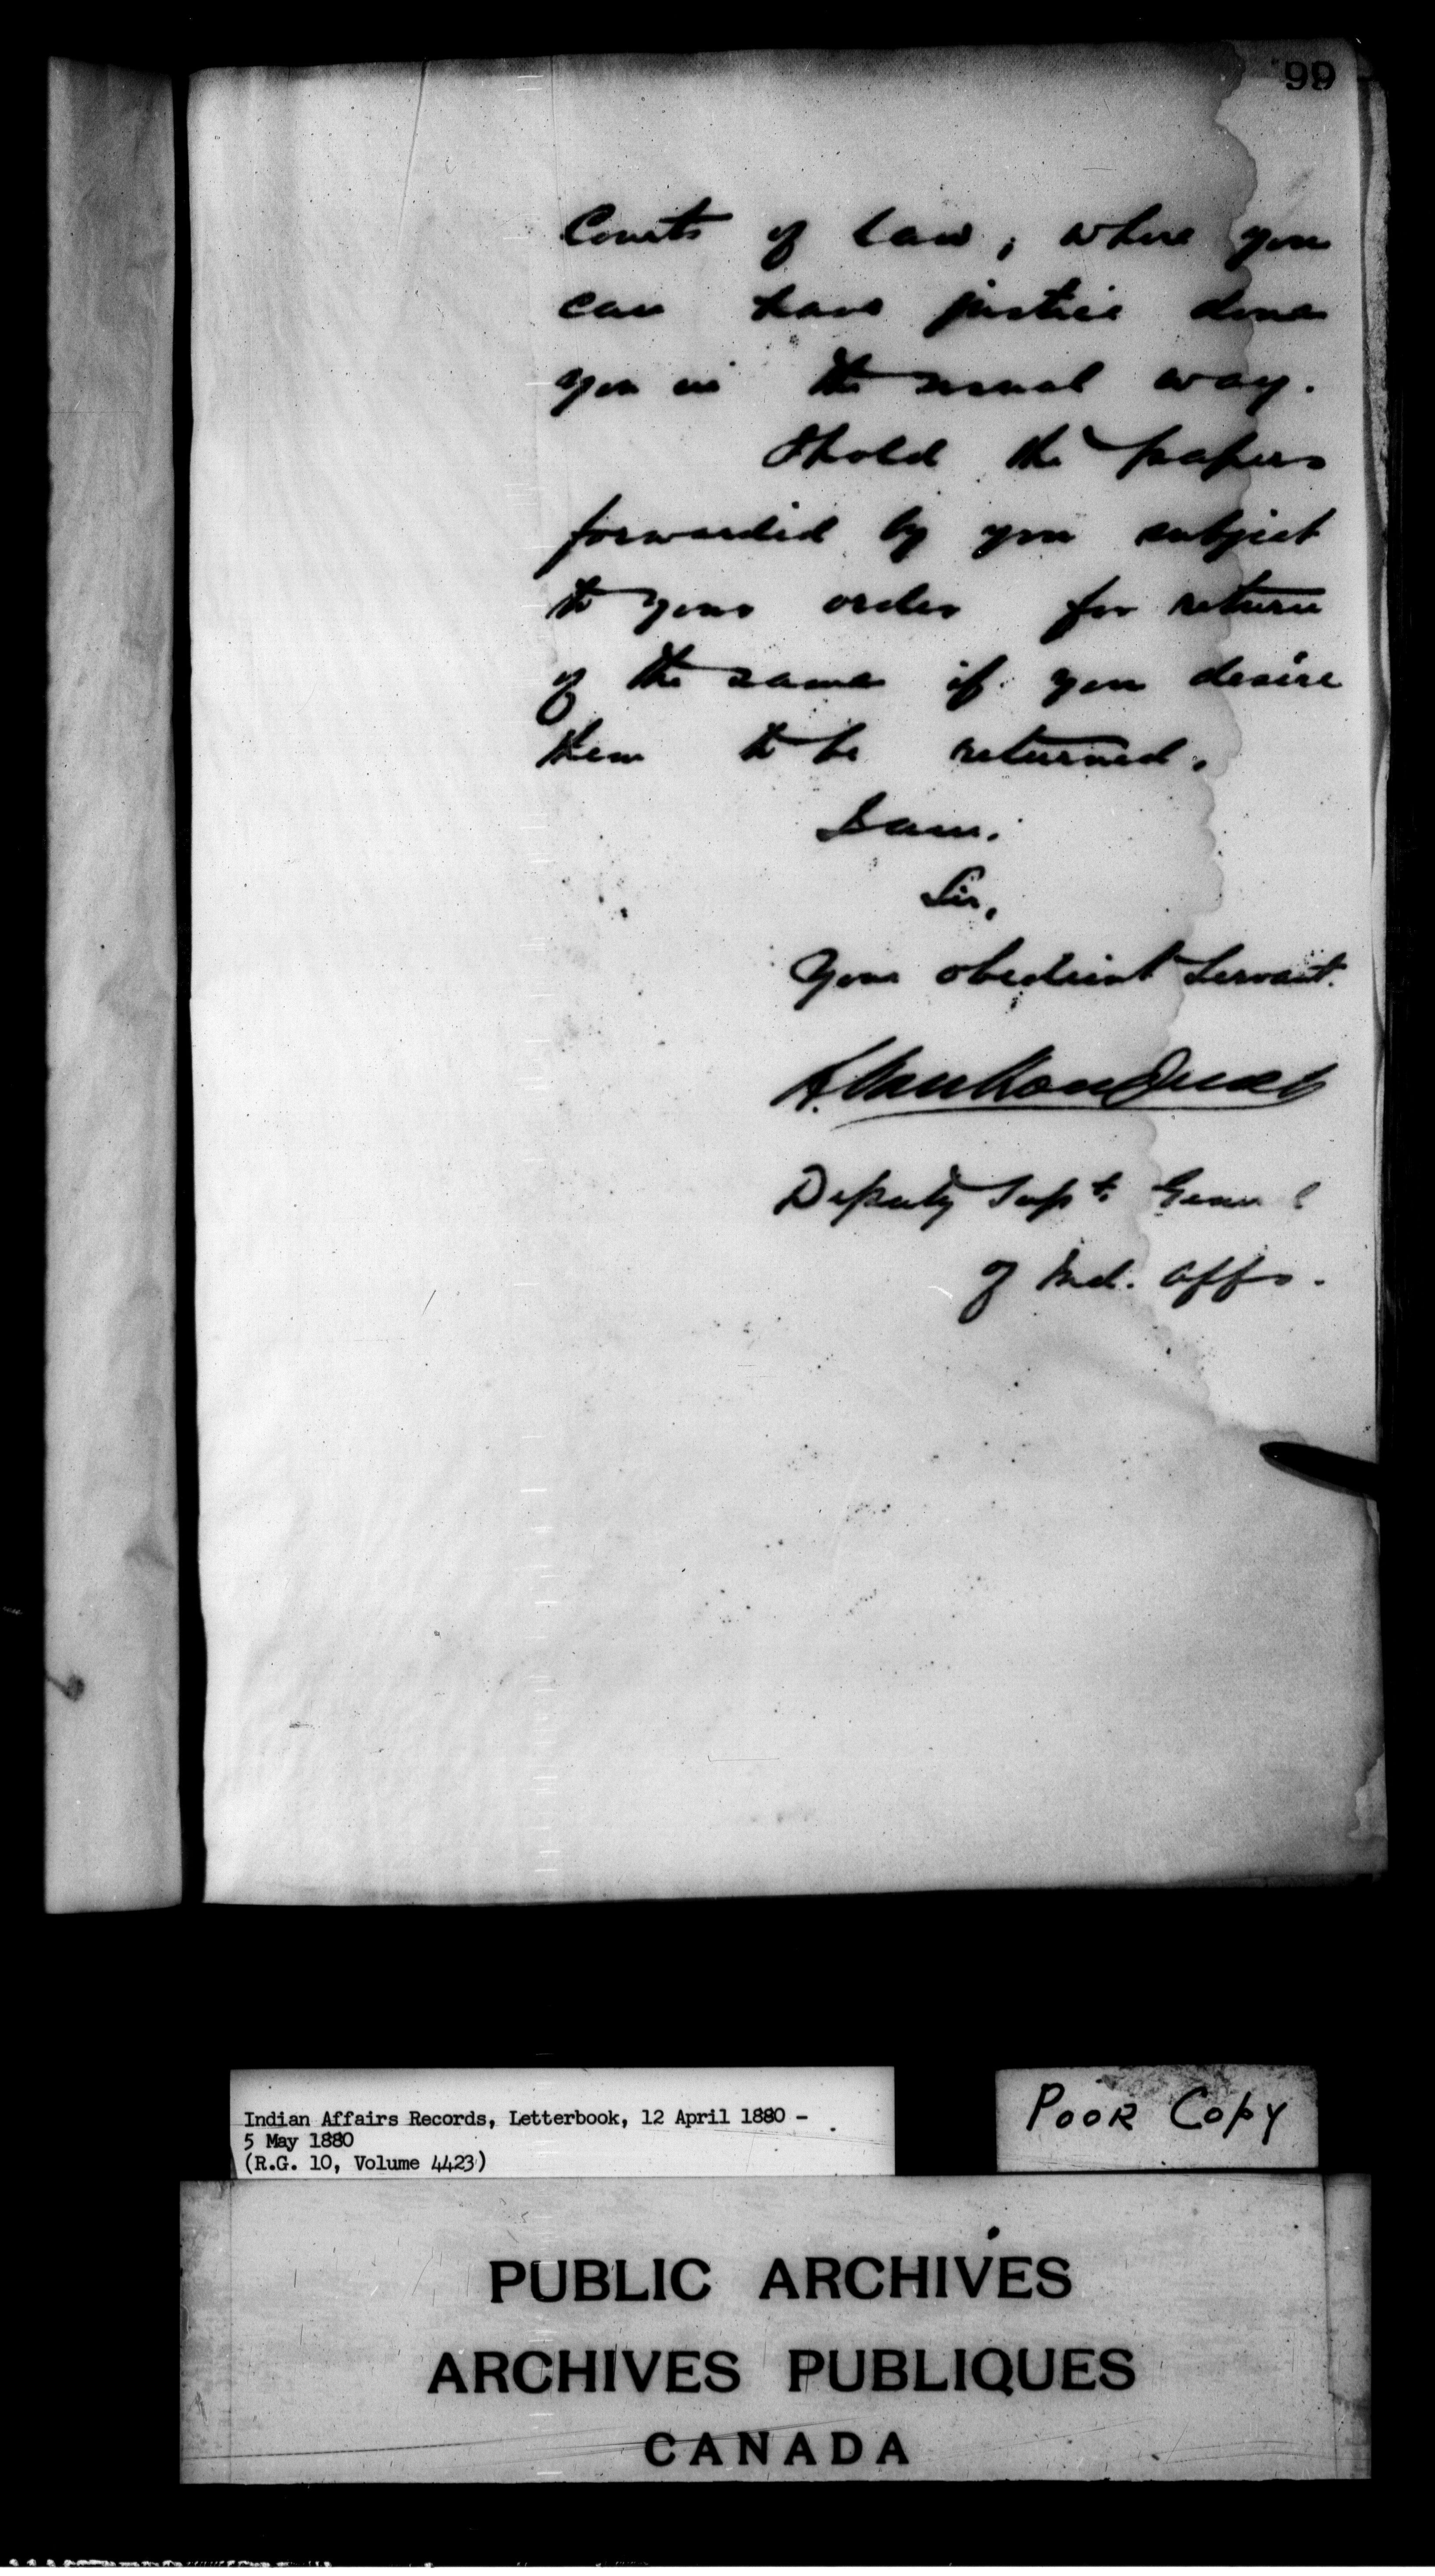 99
Courts of law, where you
can have justice done
you in the usual way.
I hold the papers
forwarded by you subject
to your order for return
of the same if you desire
them to be returned.
I am.
Sir,
Your obedient Servant.
L. VanKoughnet
Deputy Supt. General
of Ind. Affs.
Indian Affairs Records, Letterbook, 12 April 1880 -
5 May 1880
(R.G. 10, Volume 4423)
POOR COPY
PUBLIC ARCHIVES
ARCHIVES PUBLIQUES
CANADA